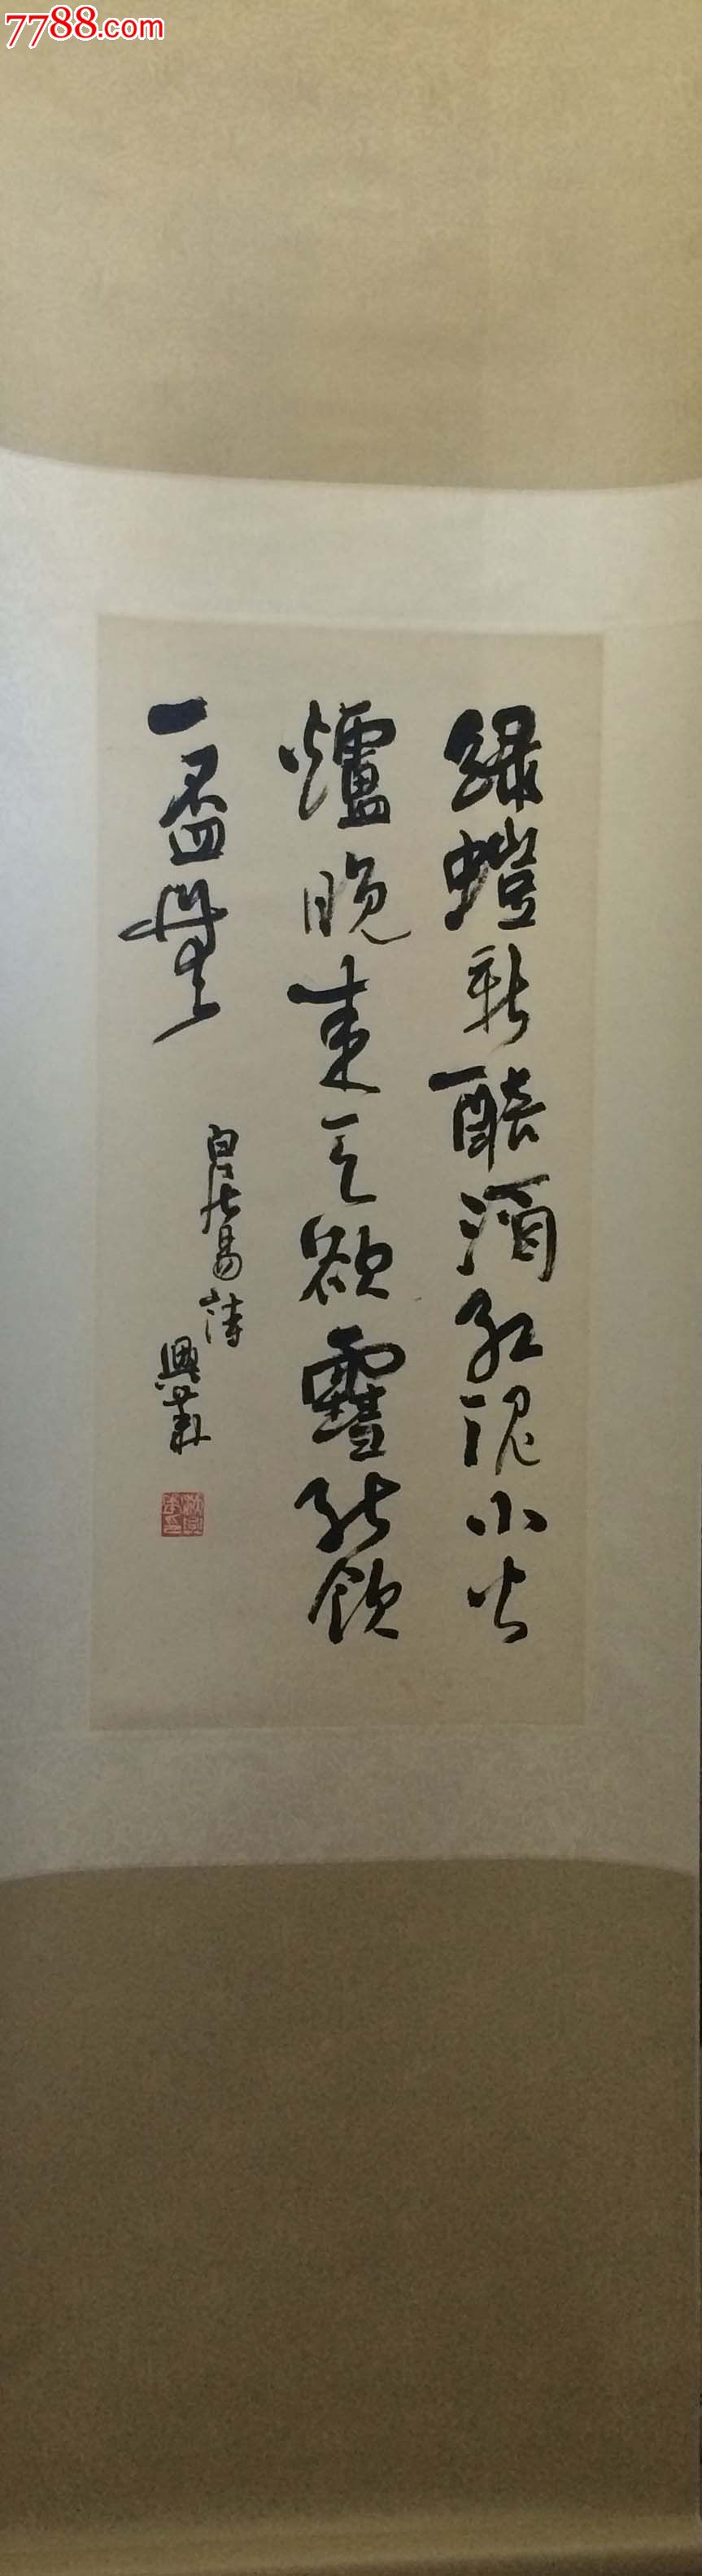 7788.com
綠螘新醅酒紅泥小火
爐晚来天欲雪能飲
一盃無
白居易詩
興